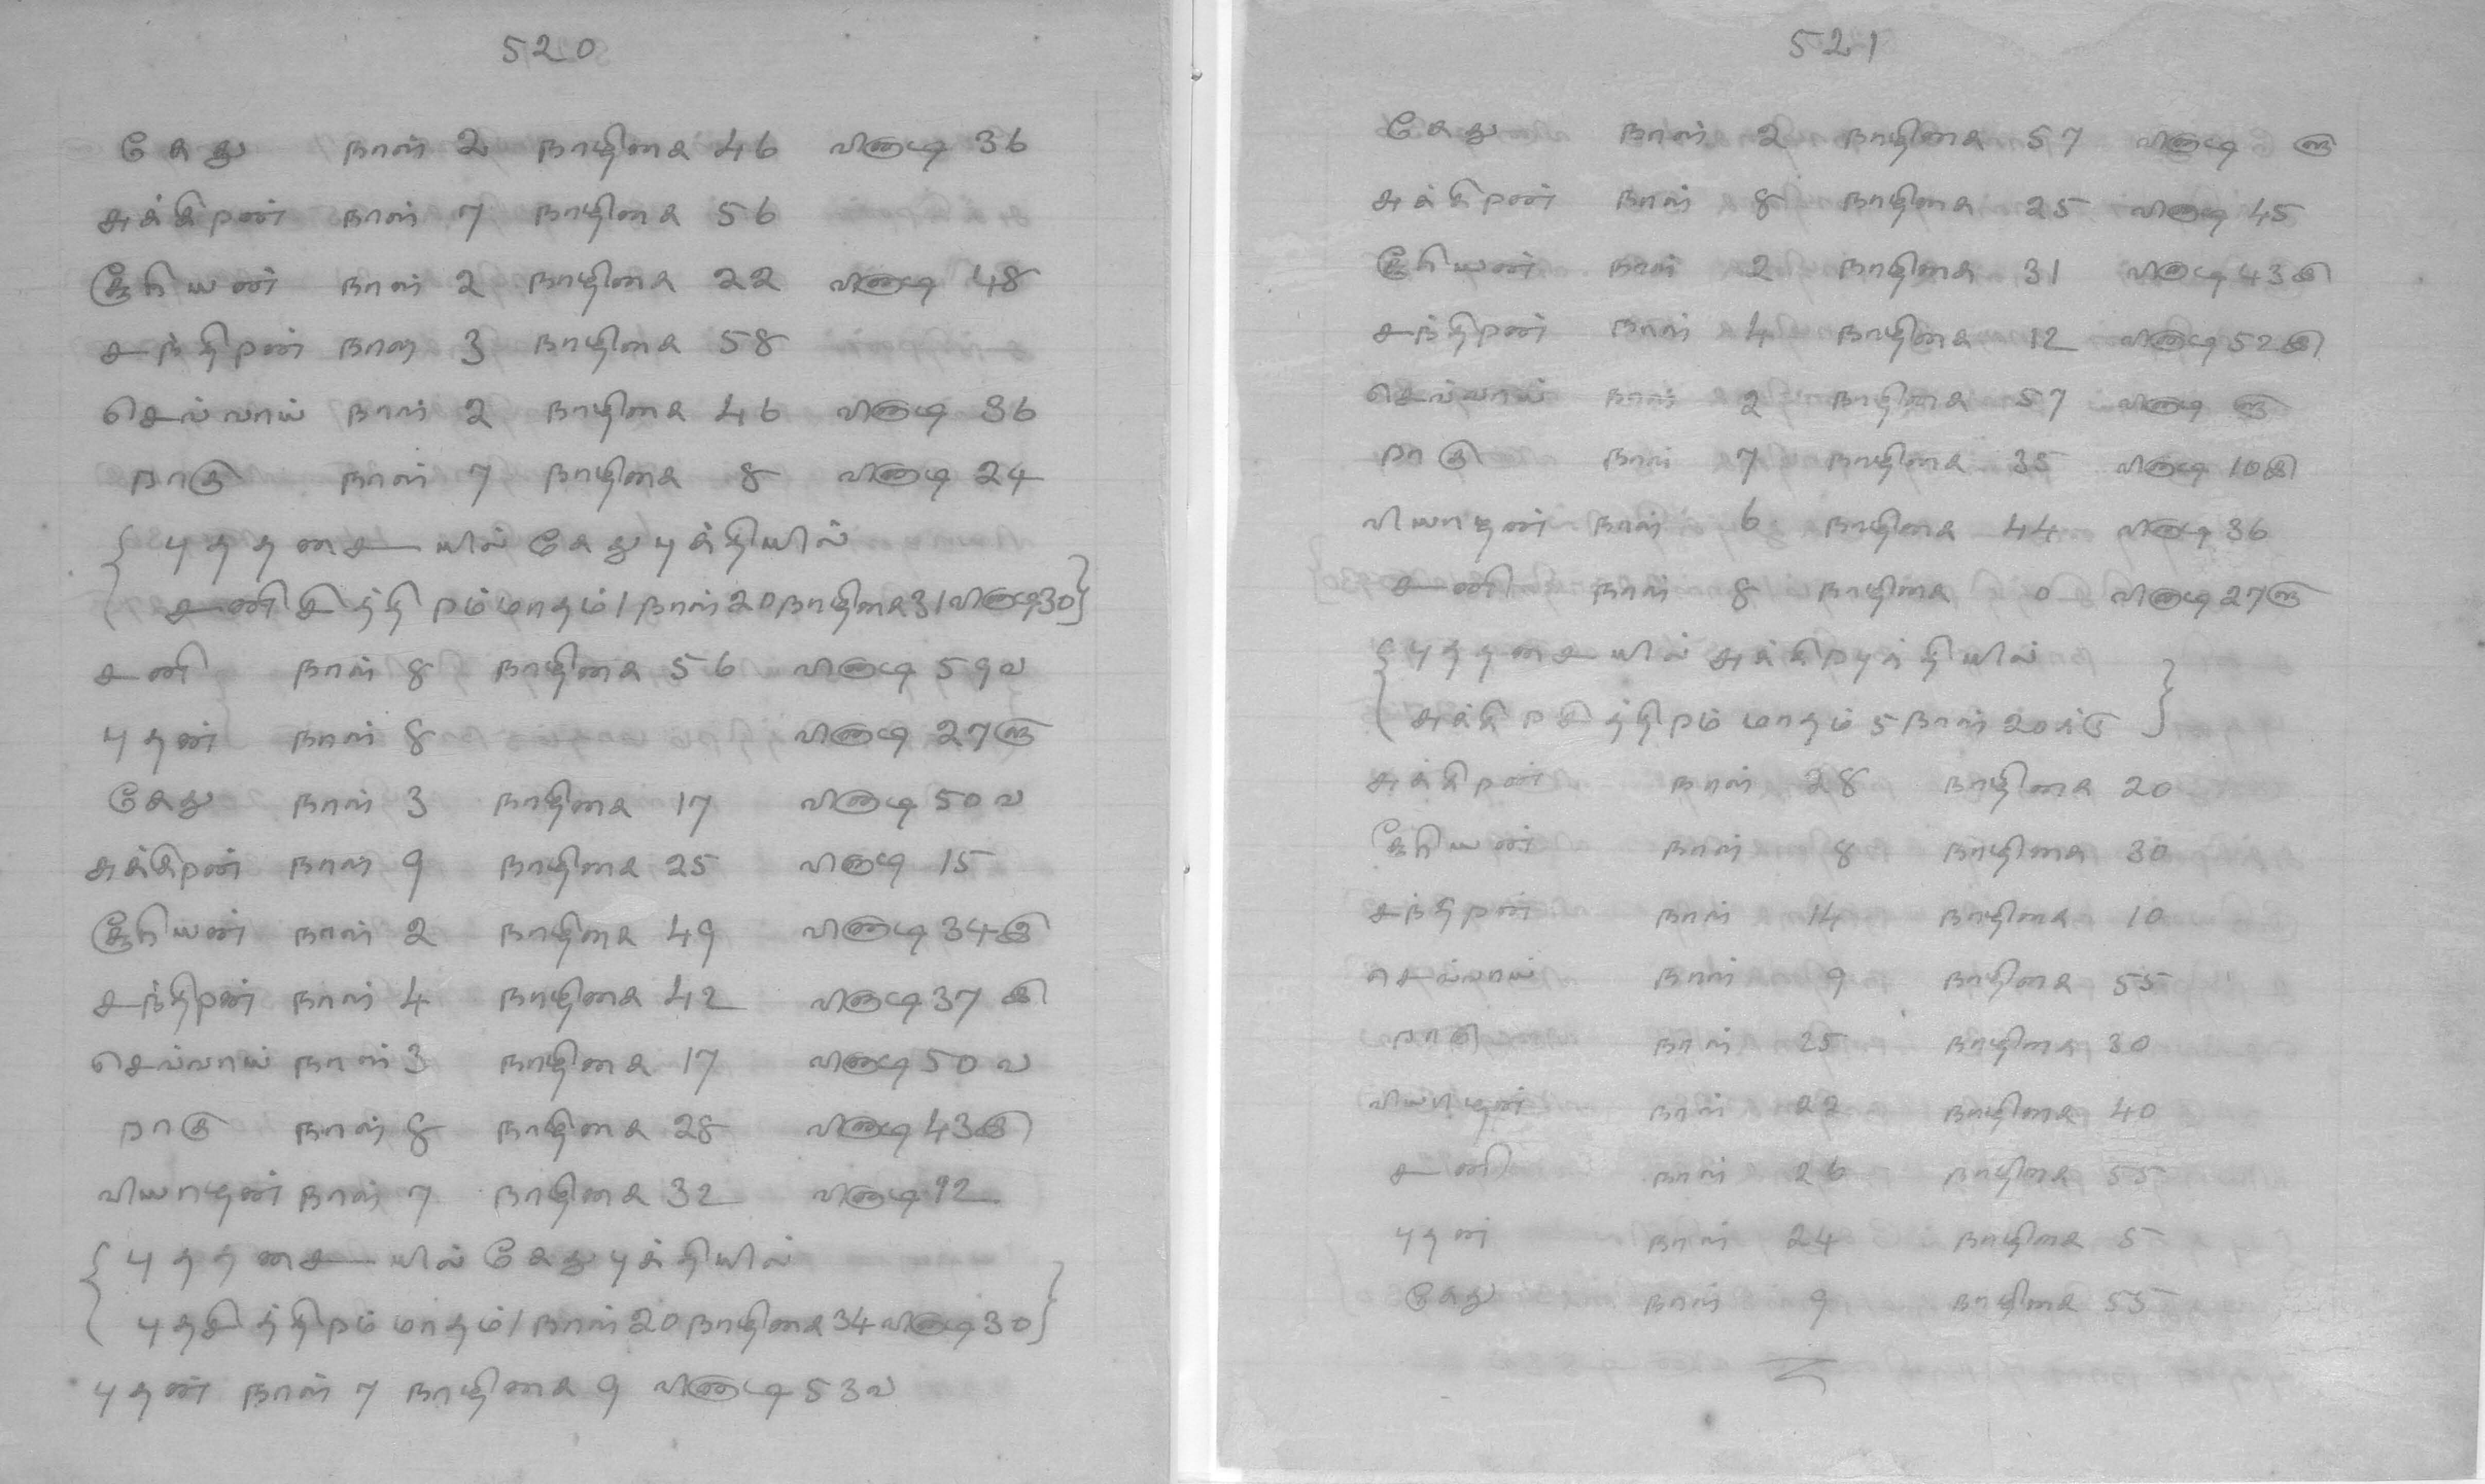 520
கேது நாள் 2 நாழிகை 46 விநாடி 36
சுக்கிரன் நாள் 7 நாழிகை 56
சூரியன் நாள் 2 நாழிகை 22 விநாடி 48
சந்திரன் நாள் 3 நாழிகை 58
செவ்வாய் நாள் 2 நாழிகை 46 விநாடி 36
ராகு நாள் 7 நாழிகை 8 விநாடி 24
{ புததசையில் கேதுபுக்தியில்
சனிசித்திரம் மாதம் 1 நாள் 20 நாழிகை 31 விநாடி 30 }
சனி நாள் 8 நாழிகை 56 விநாடி 59வ
புதன் நாள் 8 விநாடி 27௫
கேது நாள் 3 நாழிகை 17 விநாடி 50வ
சுக்கிரன் நாள் 9 நாழிகை 25 விநாடி 15
சூரியன் நாள் 2 நாழிகை 49 விநாடி 34இ
சந்திரன் நாள் 4 நாழிகை 42 விநாடி 37இ
செவ்வாய் நாள் 3 நாழிகை 17 விநாடி 50வ
ராகு நாள் 8 நாழிகை 28 விநாடி 43இ
வியாழன் நாள் 7 நாழிகை 32 விநாடி 12
{ புததசையில் கேதுபுக்தியில்
புதசித்திரம் மாதம் 1 நாள் 20 நாழிகை 34 விநாடி 30 }
புதன் நாள் 7 நாழிகை 9 விநாடி 53வ
521
கேது நாள் 2 நாழிகை 57 விநாடி ௫
சுக்கிரன் நாள் 8 நாழிகை 25 விநாடி 45
சூரியன் நாள் 2 நாழிகை 31 விநாடி 43இ
சந்திரன் நாள் 4 நாழிகை 12 விநாடி 52இ
செவ்வாய் நாள் 2 நாழிகை 57 விநாடி ௫
ராகு நாள் 7 நாழிகை 35 விநாடி 10இ
வியாழன் நாள் 6 நாழிகை 44 விநாடி 36
சனி நாள் 8 நாழிகை 0 விநாடி 27௫
{ புததசையில் சுக்கிரபுக்தியில்
சுக்கிரசித்திரம் மாதம் 5 நாள் 20க்கு }
சுக்கிரன் நாள் 28 நாழிகை 20
சூரியன் நாள் 8 நாழிகை 30
சந்திரன் நாள் 14 நாழிகை 10
செவ்வாய் நாள் 9 நாழிகை 55
ராகு நாள் 25 நாழிகை 30
வியாழன் நாள் 22 நாழிகை 40
சனி நாள் 26 நாழிகை 55
புதன் நாள் 24 நாழிகை 5
கேது நாள் 9 நாழிகை 55